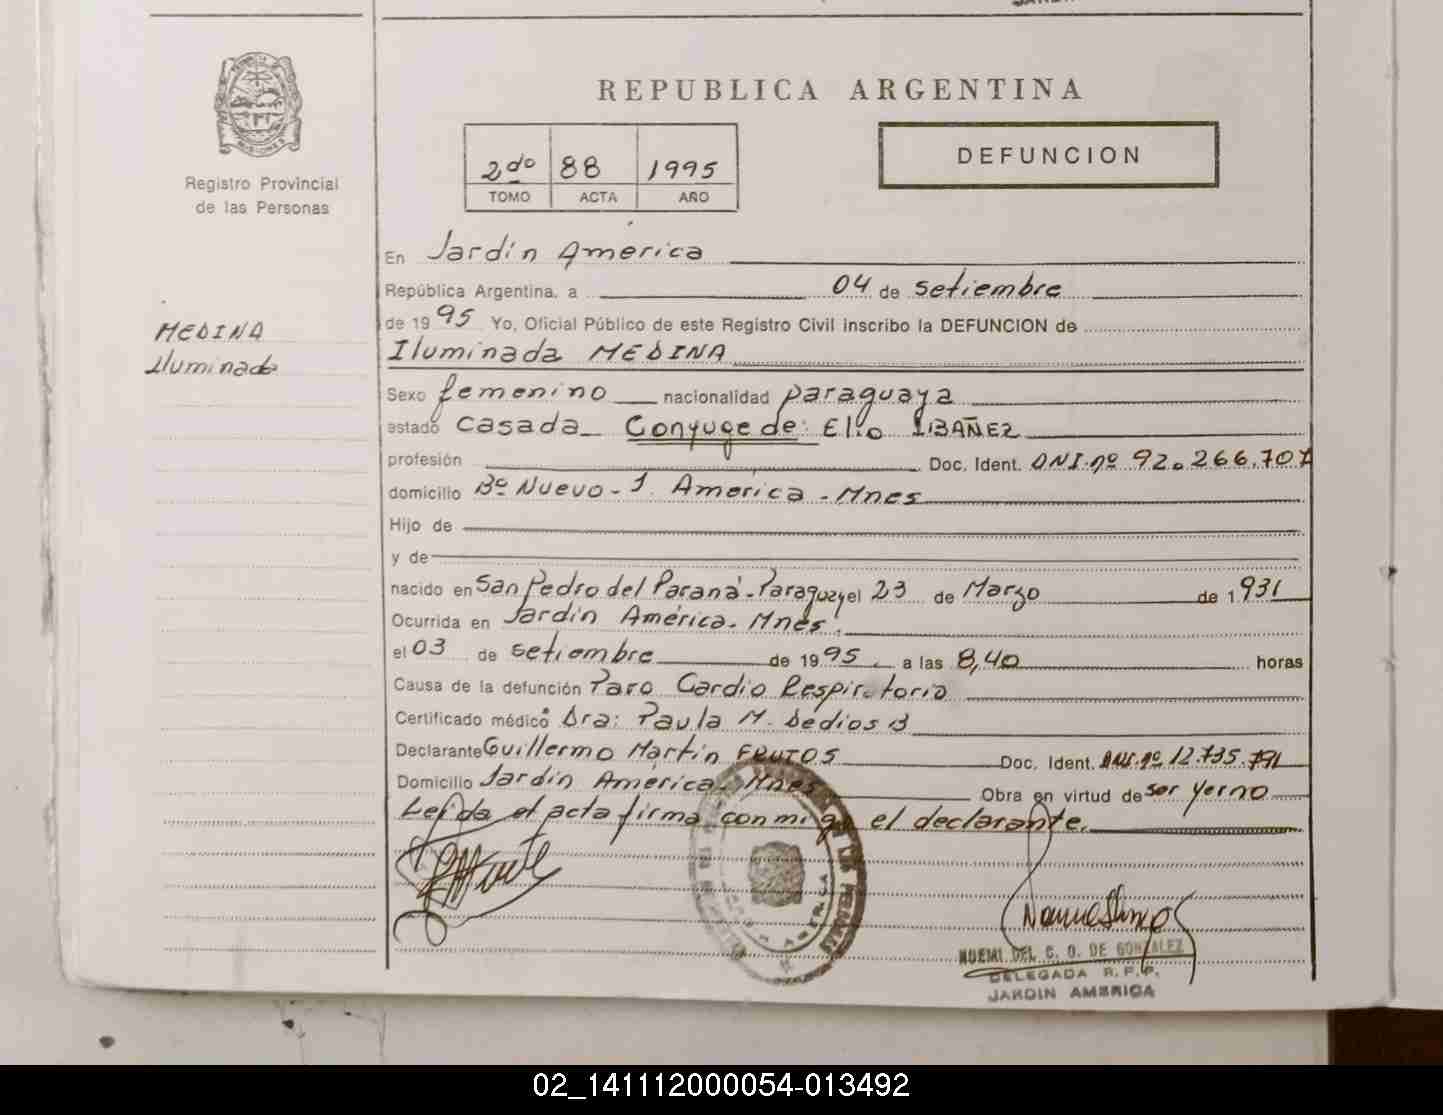 REPUBLICA ARGENTINA
MISIONES
Registro Provincial
de las Personas
2do 88 1995
TOMO ACTA AÑO
DEFUNCION
MEDINA
Iluminada
En Jardín América
República Argentina, a 04 de setiembre
de 1995 Yo, Oficial Público de este Registro Civil inscribo la DEFUNCION de
Iluminada MEDINA
Sexo femenino nacionalidad paraguaya
estado Casada Conyuge de: Elio IBAÑEZ
profesión Doc. Ident. DNI.nº 92.266.707
domicilio Bº Nuevo - J. America - Mnes
Hijo de
y de
nacido en San Pedro del Paraná - Paraguay el 23 de Marzo de 1931
Ocurrida en Jardín América - Mnes.
el 03 de setiembre de 1995 a las 8,40 horas
Causa de la defunción Paro Cardio Respiratorio
Certificado médico Dra: Paula M. Dedios B
Declarante Guillermo Martín FRUTOS Doc. Ident. DNI.nº 12.735.791
Domicilio Jardín América - Mnes Obra en virtud de ser yerno
Leída el acta firma conmigo el declarante.
JARDIN AMERICA
NOEMI DEL C. O. DE GONZALEZ
DELEGADA R.P.P.
JARDIN AMERICA
02_141112000054-013492